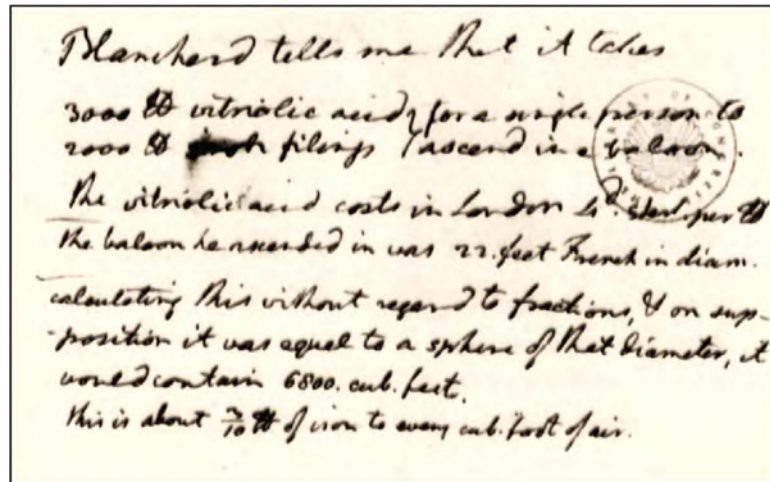 Blanchard tells me that it takes
3000 ℔ vitriolic acid } for a single person to
2000 ℔ filings } ascend in a baloon.
The vitriolic acid costs in London 4d. sterl per ℔
the baloon he ascended in was 22. feet French in diam.
calculating this without regard to fractions, & on sup-
-position it was equal to a sphere of that diameter, it
would contain 6800. cub. feet.
this is about 3/10 ℔ of iron to every cub. foot of air.